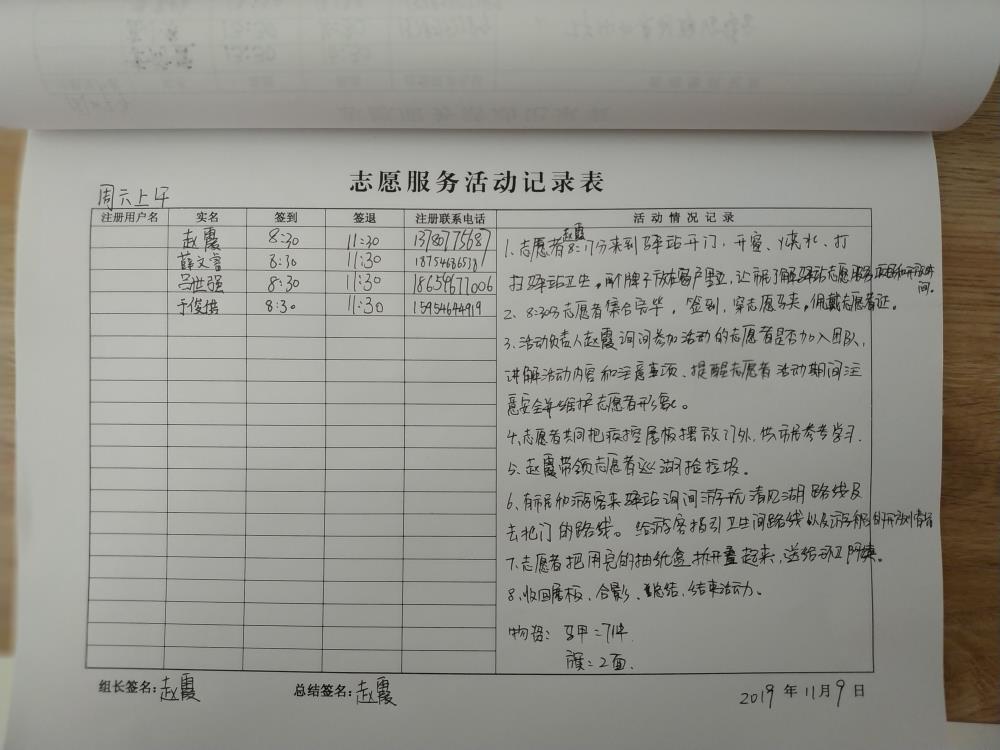 志愿服务活动记录表
周六上午
注册用户名 实名 签到 签退 注册联系电话 活动情况记录
赵霞 8:30 11:30 13780775687
薛文睿 8:30 11:30 18754686538
吕世强 8:30 11:30 18654677006
于俊 8:30 11:30 15954644919
1、志愿者赵霞8:17分来到驿站开门、开窗、烧水、打
扫驿站卫生。 牌子放在窗户里,让市民了解驿站志愿服务项目和 时
间。
2、8:30分志愿者集合完毕。签到,穿志愿马夹。佩戴志愿者证。
3、活动负责人赵霞询问参加活动的志愿者是否加入团队,
讲解活动内容和注意事项、提醒志愿者活动期间注
意安全并维护志愿者形象。
4、志愿者共同把疫控展板摆放门外,供市民参考学习.
5、赵霞带领志愿者巡湖捡垃圾。
6、有市民和游客来驿站询问游玩清风湖路线及
去北门的路线。给游客指引卫生间路线以及游船的开放时间
7、志愿者把用完的抽纸盒拆开叠起来,送给
8、收回展板、合影、总结、结束活动。
物资:马甲=7件
旗:2面.
组长签名:赵霞 总结签名:赵霞
2019年11月9日